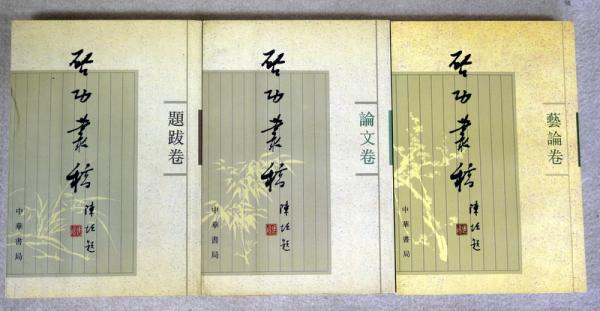 啓功叢稿
題跋卷
陳垣題
中華書局
啓功叢稿
論文卷
陳垣題
中華書局
啓功叢稿
藝論卷
陳垣題
中華書局